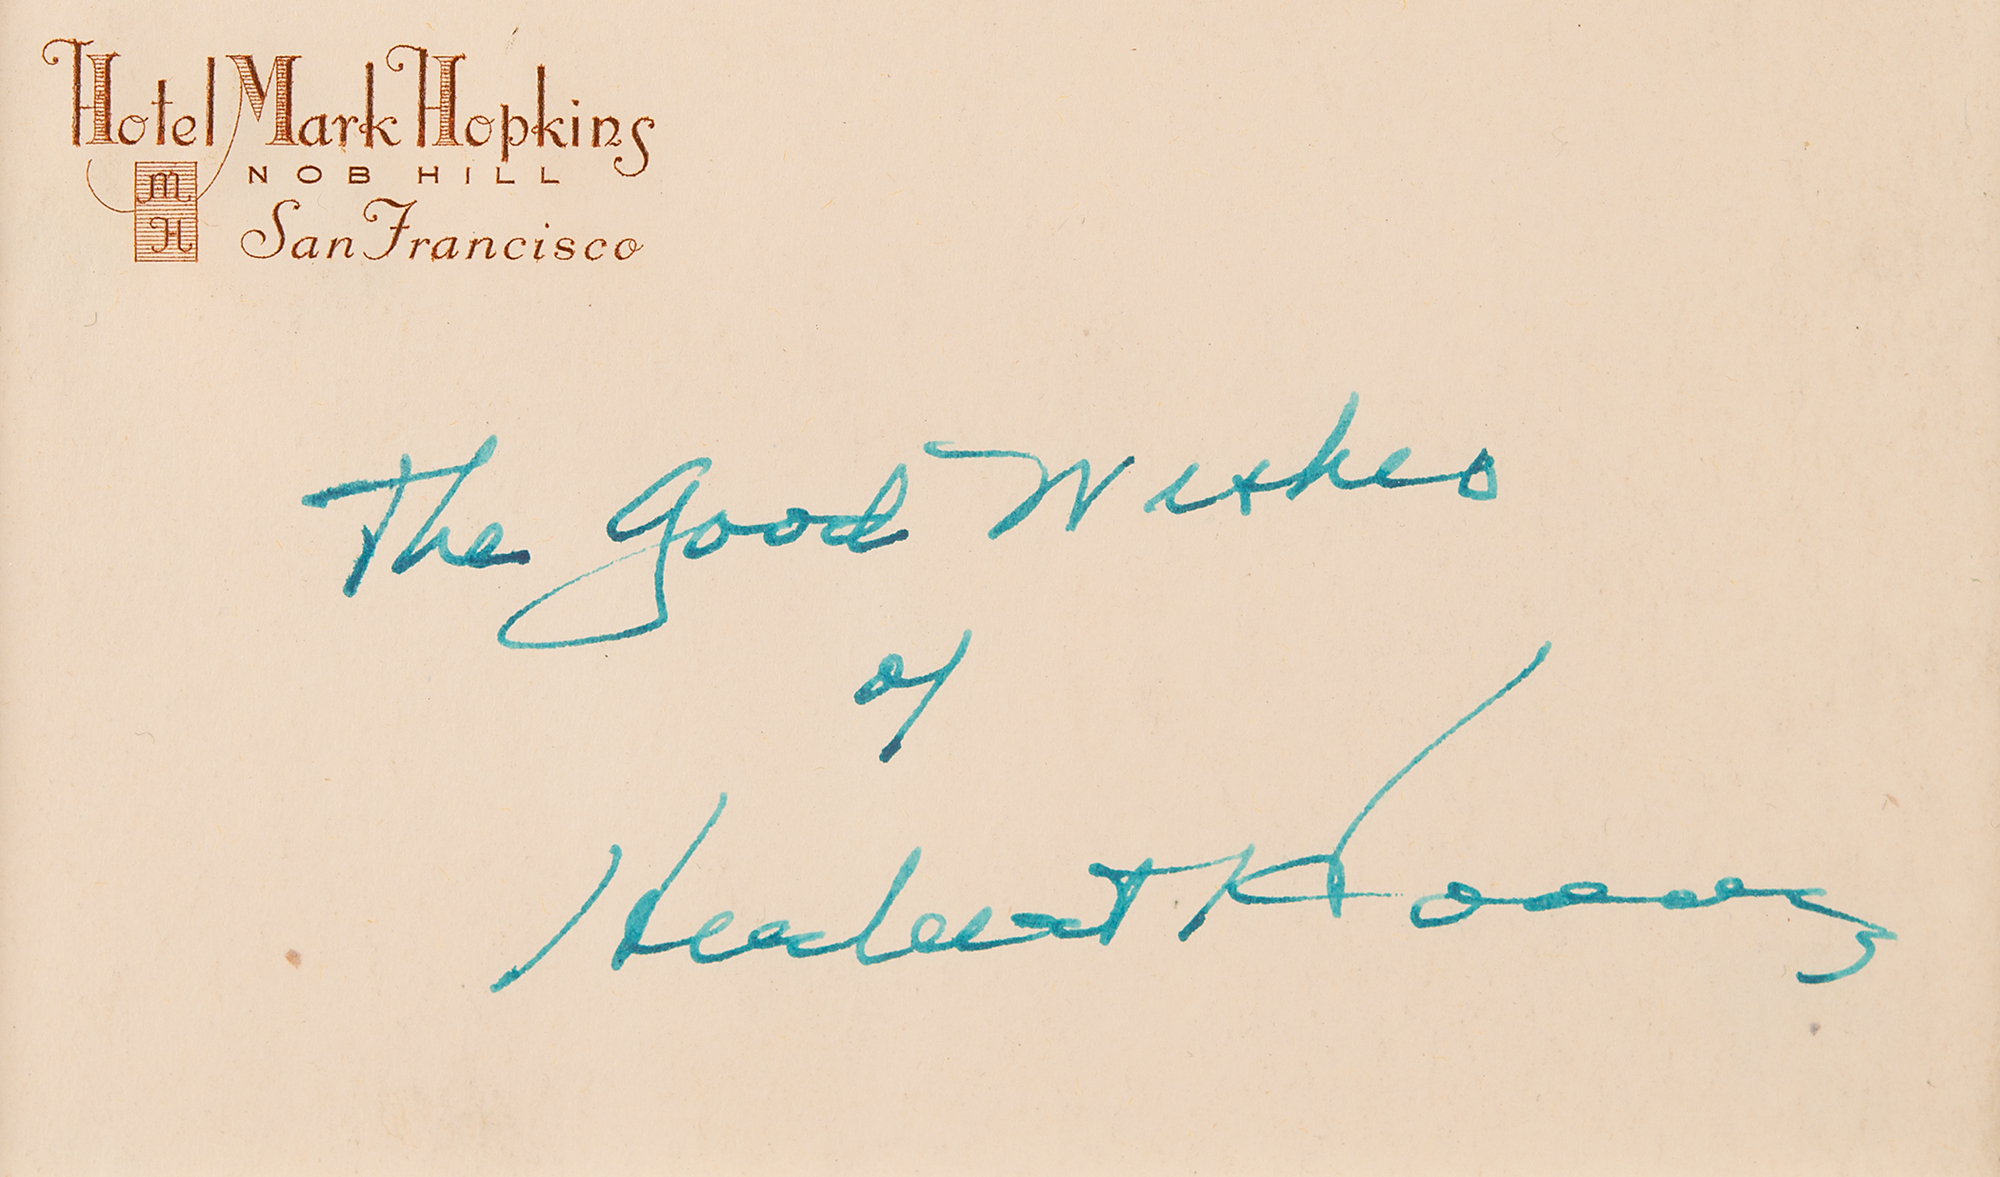 Hotel Mark Hopkins
NOB HILL
MH
San Francisco
The Good Wishes
of
Herbert Hoover